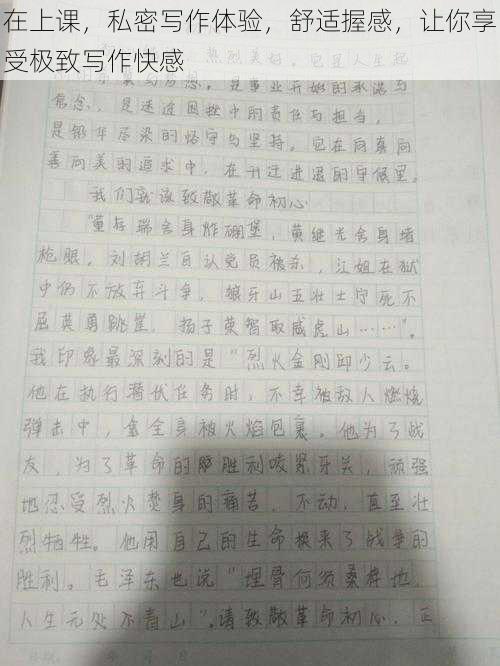 在上课，私密写作体验，舒适握感，让你享
受极致写作快感
热烈美好。它是人生起
是事业开始的承诺与
信念，是迷途困挫中的责任与担当，
是铅华尽染的恪守与坚持。它在向真向
善向美的追求中，在升迁进退的守候里。
我们就该致敬革命初心
“董存瑞舍身炸碉堡，黄继光舍身堵
枪眼，刘胡兰自认党员被杀，江姐在狱
中仍不放弃斗争，狼牙山五壮士宁死不
屈英勇跳崖，杨子荣智取威虎山……”。
我印象最深刻的是“烈火金刚邱少云。
他在执行潜伏任务时，不幸被敌人燃烧
弹击中，全身被火焰包裹。他为了战
友，为了革命的胜利咬紧牙关，顽强
地忍受烈火焚身的痛苦，不动，直至壮
烈牺牲。他用自己的生命换来了战争的
胜利。毛泽东也说“埋骨何须桑梓地，
人生无处不青山”。请致敬革命初心，正